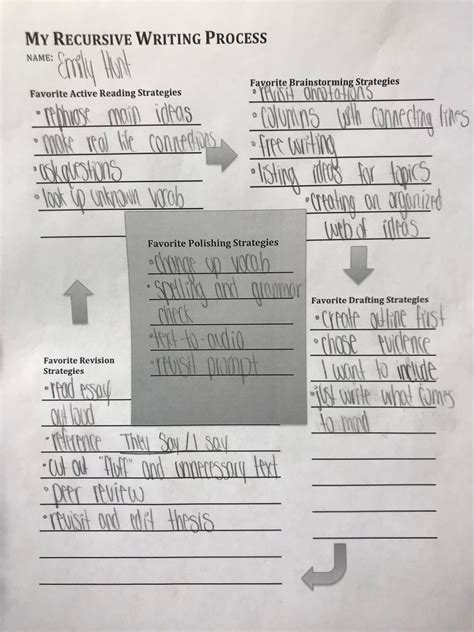 MY RECURSIVE WRITING PROCESS
NAME: Emily Hunt
Favorite Active Reading Strategies
• rephrase main ideas
• make real life connections
• ask questions
• look up unknown vocab
Favorite Brainstorming Strategies
• revisit annotations
• columns with connecting lines
• free writing
• listing ideas for topics
• creating an organized
web of ideas
Favorite Drafting Strategies
• create outline first
• chose evidence
I want to include
• just write what comes
to mind
Favorite Revision
Strategies
• read essay
out loud
• reference They Say/I Say
• cut out "fluff" and unnecessary text
• peer review
• revisit and edit thesis
Favorite Polishing Strategies
• change up vocab
• spelling and grammar
check
• text-to-audio
• revisit prompt